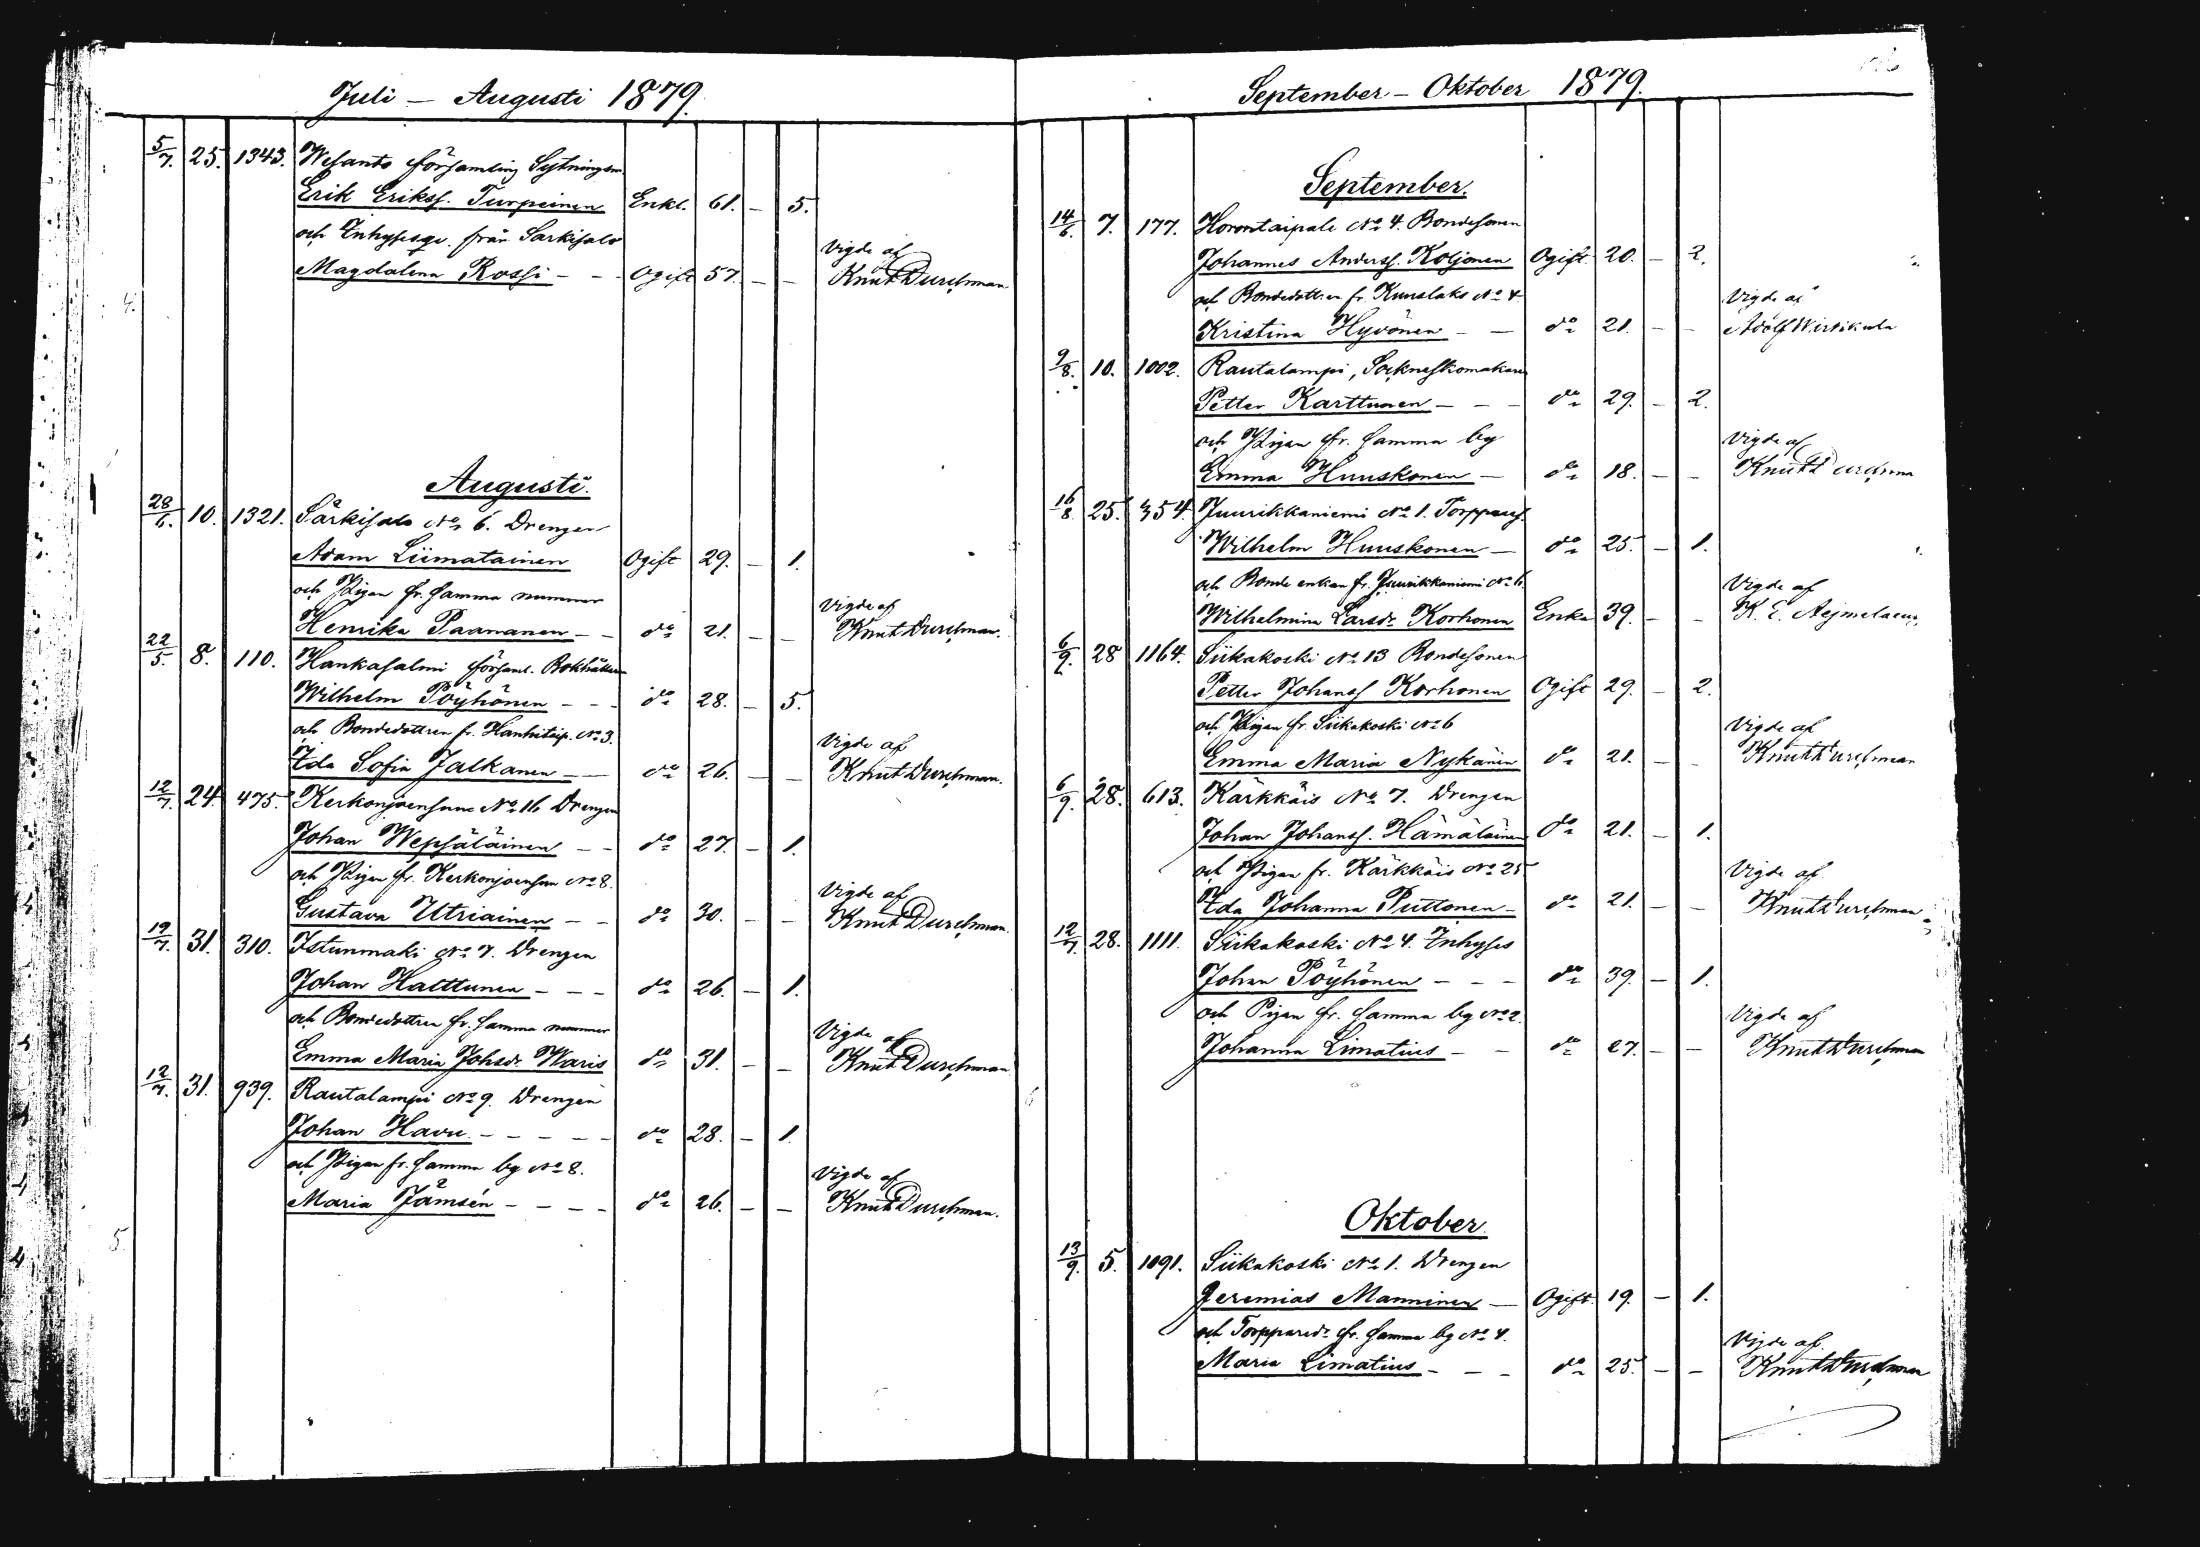 Juli — Augusti 1879.
5/7. 25. 1343. Wesanto församling Sytningsm.
Erik Erikss. Turpeinen Enkl. 61. — 5.
och Inhysesqv. från Sarkisalo Vigde af
Magdalena Rossi — — Ogift 57. — — Knut Durchman
Augusti.
28/6. 10. 1321. Särkisalo No 6. Drengen
Adam Liimatainen Ogift 29. — 1.
och Pigan fr. samma nummer Vigde af
Henrika Paananen — — do 21. — — Knut Durchman.
22/5. 8. 110. Hankasalmi församl. Bokhållaren
Wilhelm Pöyhönen — — — do 28. — 5.
och Bondedottren fr. Hanhitaip. No 3. Vigde af
Ida Sofia Jalkanen — — do 26. — — Knut Durchman.
12/7. 24. 475. Kerkonjoensuu No 16 Drengen
Johan Wepsäläinen — — do 27. — 1.
och Pigan fr. Kerkonjoensuu No 8. Vigde af
Gustava Utriainen — — do 30. — — Knut Durchman.
19/7. 31. 310. Istunmaki No 7. Drengen
Johan Halttunen — — — do 26. — 1.
och Bondedottren fr. samma nummer Vigde af
Emma Maria Johsdr Waris do 31. — — Knut Durchman
12/7. 31. 939. Rautalampi No 9. Drengen
Johan Havu — — — — — do 28. — 1.
och Pigan fr. samma by No 8. Vigde af
Maria Jämsén — — — — do 26. — — Knut Durchman.
September — Oktober 1879.
September.
14/6. 7. 177. Horontaipale No 4. Bondesonen
Johannes Anderss. Koljonen Ogift 20. — 2.
och Bondedottren fr. Kuuslaks No 4 Vigde af
Kristina Hyvönen — — do 21. — — Adolf Wirkkula
9/8. 10. 1002. Rautalampi, Socknessomakaren
Petter Karttunen — — — do 29. — 2.
och Pigan fr. samma by Vigde af
Emma Huuskonen — do 18. — — Knut Durchman
16/8. 25. 354. Juurikkaniemi No 1. Torppares.
Wilhelm Huuskonen — do 25. — 1.
och Bonde enkan fr. Juurikkaniemi No 6. Vigde af
Wilhelmina Larsdr Korhonen Enka 39. — — K. E. Aejmelaeus
6/9. 28 1164. Siikakoski No 13 Bondesonen
Petter Johanss Korhonen Ogift 29. — 2.
och Pigan fr. Siikakoski No 6 Vigde af
Emma Maria Nykänen do 21. — — Knut Durchman
6/9. 28. 613. Kärkkäis No 7. Drengen
Johan Johanss. Hämäläinen do 21. — 1.
och Pigan fr. Kärkkäis No 25 Vigde af
Ida Johanna Puttonen — do 21. — — Knut Durchman
12/7. 28. 1111. Siikakoski No 4. Inhyses
Johan Pöyhönen — — — do 39. — 1.
och Pigan fr. samma by No 2. Vigde af
Johanna Limatius — — do 27. — — Knut Durchman
Oktober.
13/9. 5. 1091. Siikakoski No 1. Drengen
Jeremias Manninen — Ogift. 19. — 1.
och Torpparedr fr. samma by No 4. Vigde af
Maria Limatius — — — do 25. — — Knut Durchman